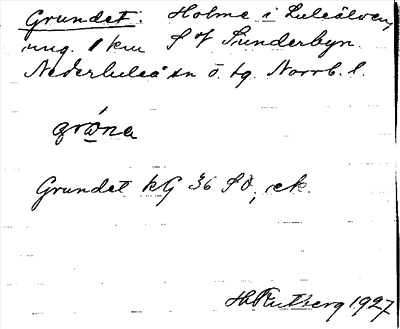 Grundet: Holme i Luleälven,
ung. 1 km S of Sunderbyn.
Nederluleå sn ö. tg. Norrb. l.
Grundet kG 36 SO, ek.
1927